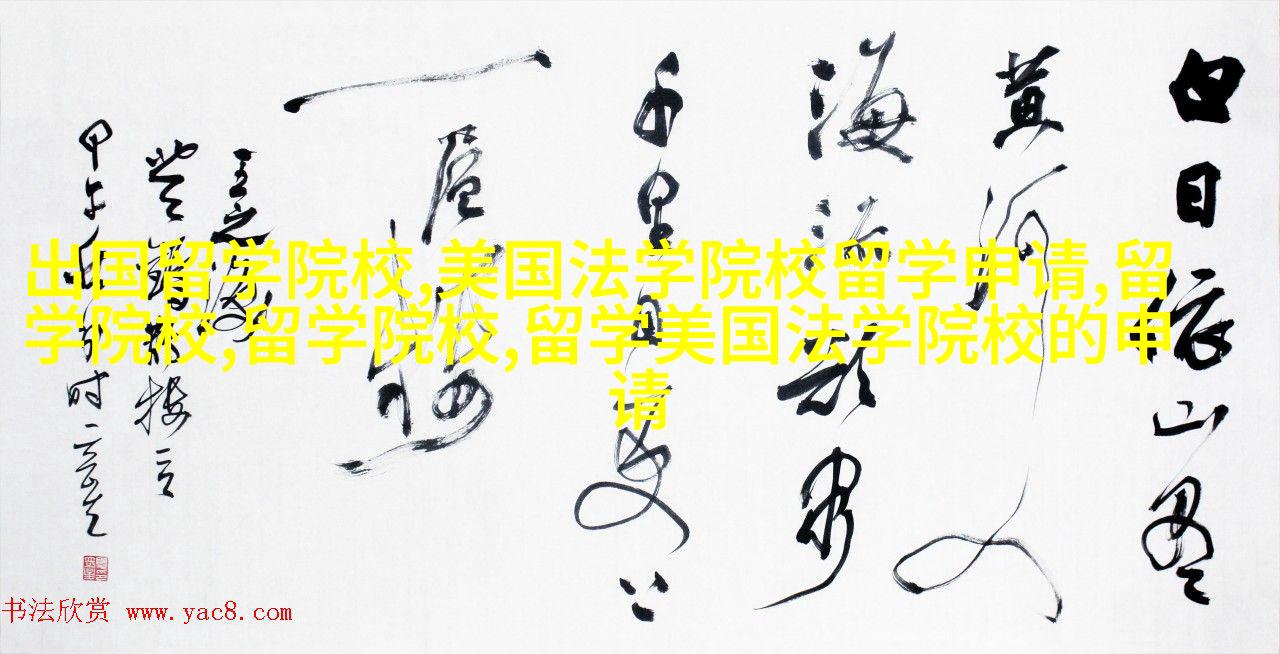 白日依山尽
黄河入
海流欲穷
千里目更上
一层楼
王之涣
登鹳雀楼
甲午
时
出国留学院校,美国法学院校留学申请,留
学院校,留学院校,留学美国法学院校的申
请
书法欣赏 www.yac8.com